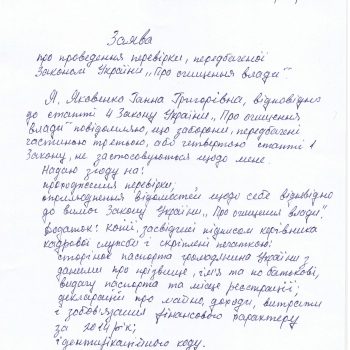 Заява
про проведення перевірки, передбаченої
Законом України „Про очищення влади"
Я, Яковенко Ганна Григорівна, відповідно
до статті 4 Закону України „Про очищення
влади" повідомляю, що заборони, передбачені
частиною третьою, або четвертою статті 1
Закону, не застосовуються щодо мене.
Надаю згоду на:
проходження перевірки;
оприлюднення відомостей щодо себе відповідно
до вимог Закону України „Про очищення влади"
Додаток: копії, засвідчені підписом керівника
кадрової служби і скріплені печаткою:
сторінок паспорта громадянина України з
даними про прізвище, ім'я та по батькові,
видачу паспорта та місце реєстрації,
декларації про майно, доходи, витрати
і зобов'язання фінансового характеру
за 2014 рік;
ідентифікаційного коду.